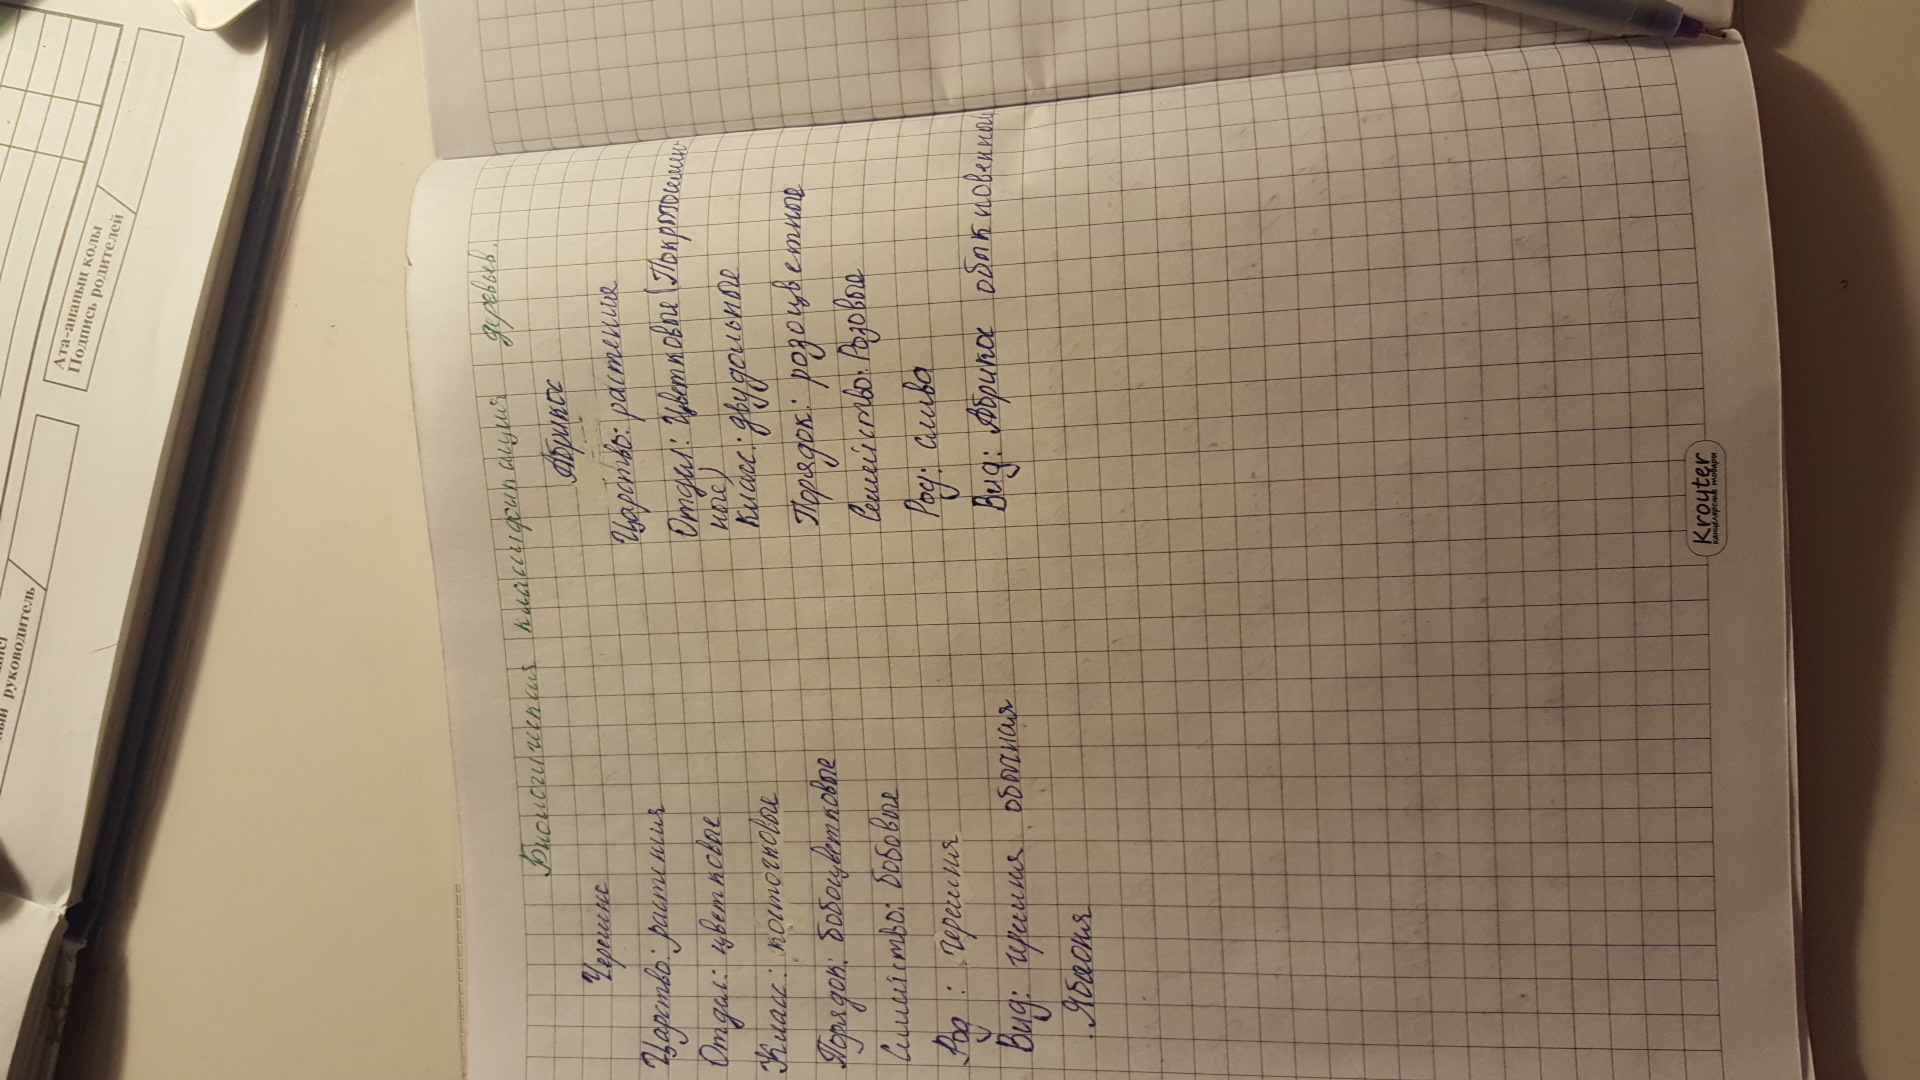 Биологическая классификация деревьев.
Черешня
Царство: растения
Отдел: цветковые
Класс: косточковые
Порядок: бобоцветковые
Семейство: бобовые
Род: черешня
Вид: черешня обычная
Яблоня
Абрикос
Царство: растения
Отдел: Цветковые (Покрытосемен-
ные)
Класс: двудольные
Порядок: розоцветные
Семейство: Розовые
Род: слива
Вид: Абрикос обыкновенный
Kroyter
канцелярские товары
Ата-ананың қолы
Подпись родителей
руководитель